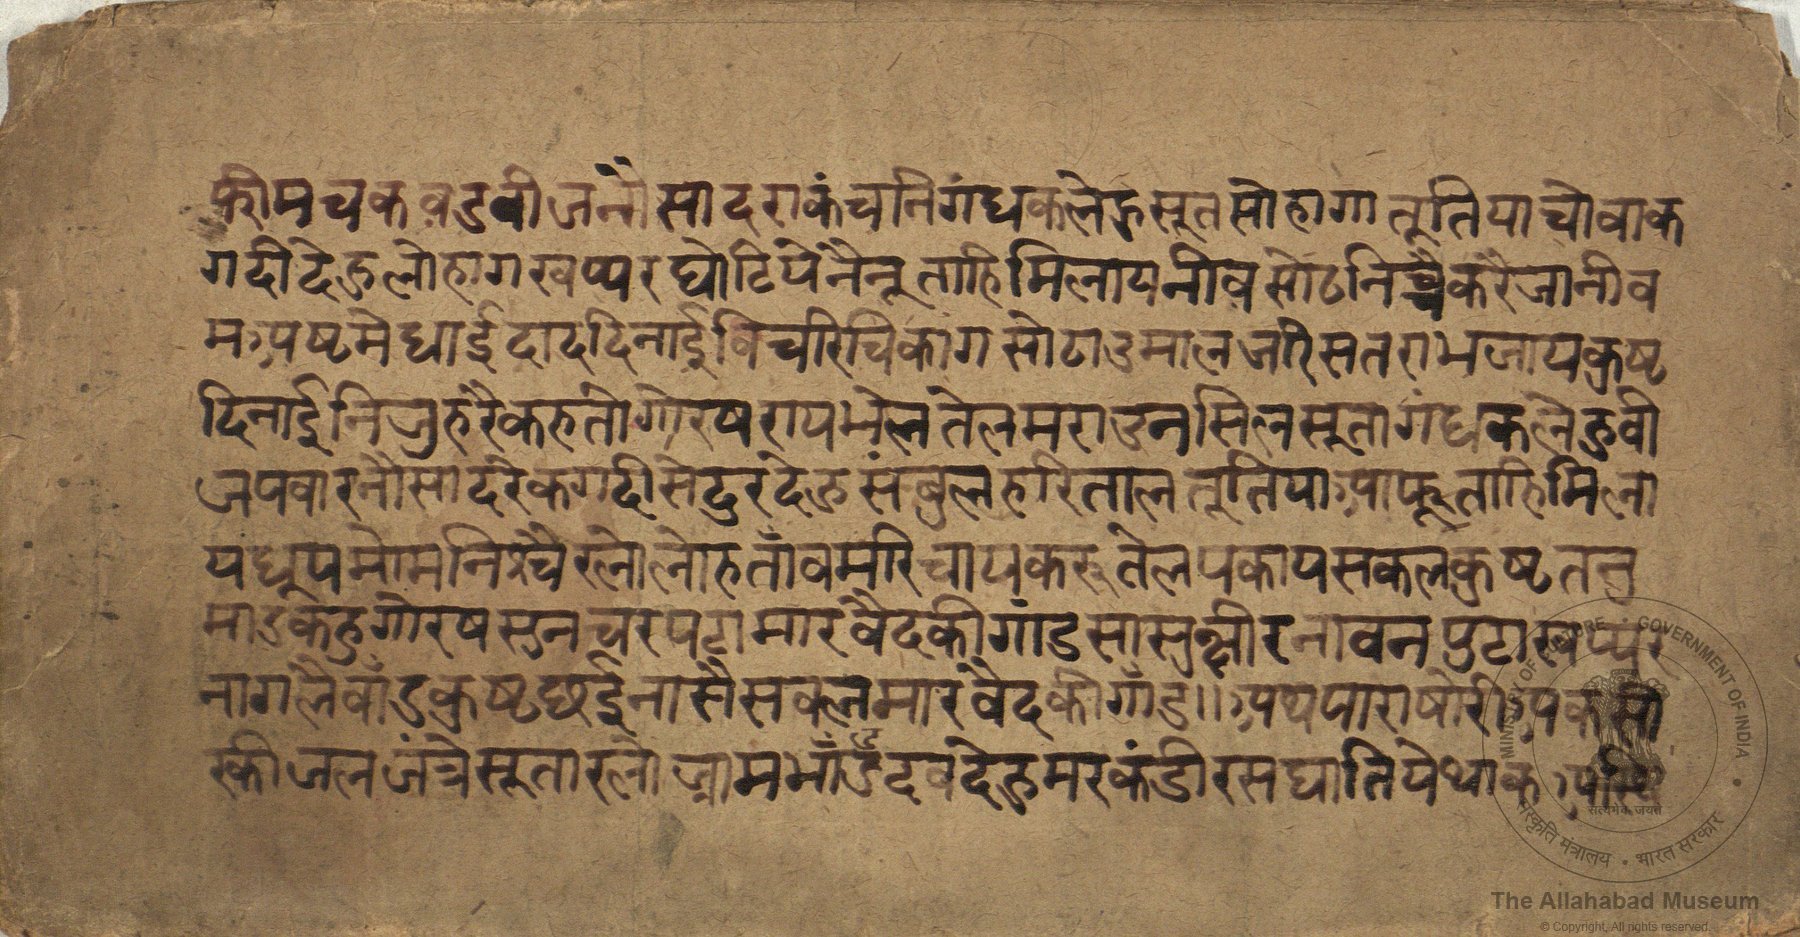 कीमचकवडवीजनौसादराकंचनिगंधकलेहुसूतसोहागातूतियाचोवाक
गदीदेहुलोहागखप्परघोटिपेनैनूताहिमिलायनीवसोठनिश्चैकरैजानीव
मअष्टमेघाईदाददिनाईविचरिचिकागसोटाउमालजरिसतराभजायक्रष्ट
दिनाईनिजुहरैकहतोगोरषरायभेलतेलमराउनसिलसूतागंधकलैहुवी
अपवारनौसादरेकगदीसेदुरदेहुसंबुलहरितालतूतियाअाफूताहिमिला
यधूपमोमनिश्चैरलोलोहतांवमरिचायकरूतेलपकायसकलक्रष्टतन
माउकहुगोरषसुनचरपटामारवैदकीगांडसासुक्षीरनावनपुटाखप्पर
नागलैवाँउक्रष्टछईनासैसकलमारवैदकीगाँड॥अथपाराषोरीअकसौ
रकीजलजंत्रेसूतारलोजाममाँउँटवदेहुमरकंडीरसघातिपेथाक
सत्यमेव जयते
MINISTRY OF CULTURE • GOVERNMENT OF INDIA •
संस्कृति मंत्रालय • भारत सरकार
The Allahabad Museum
© Copyright, All rights reserved.